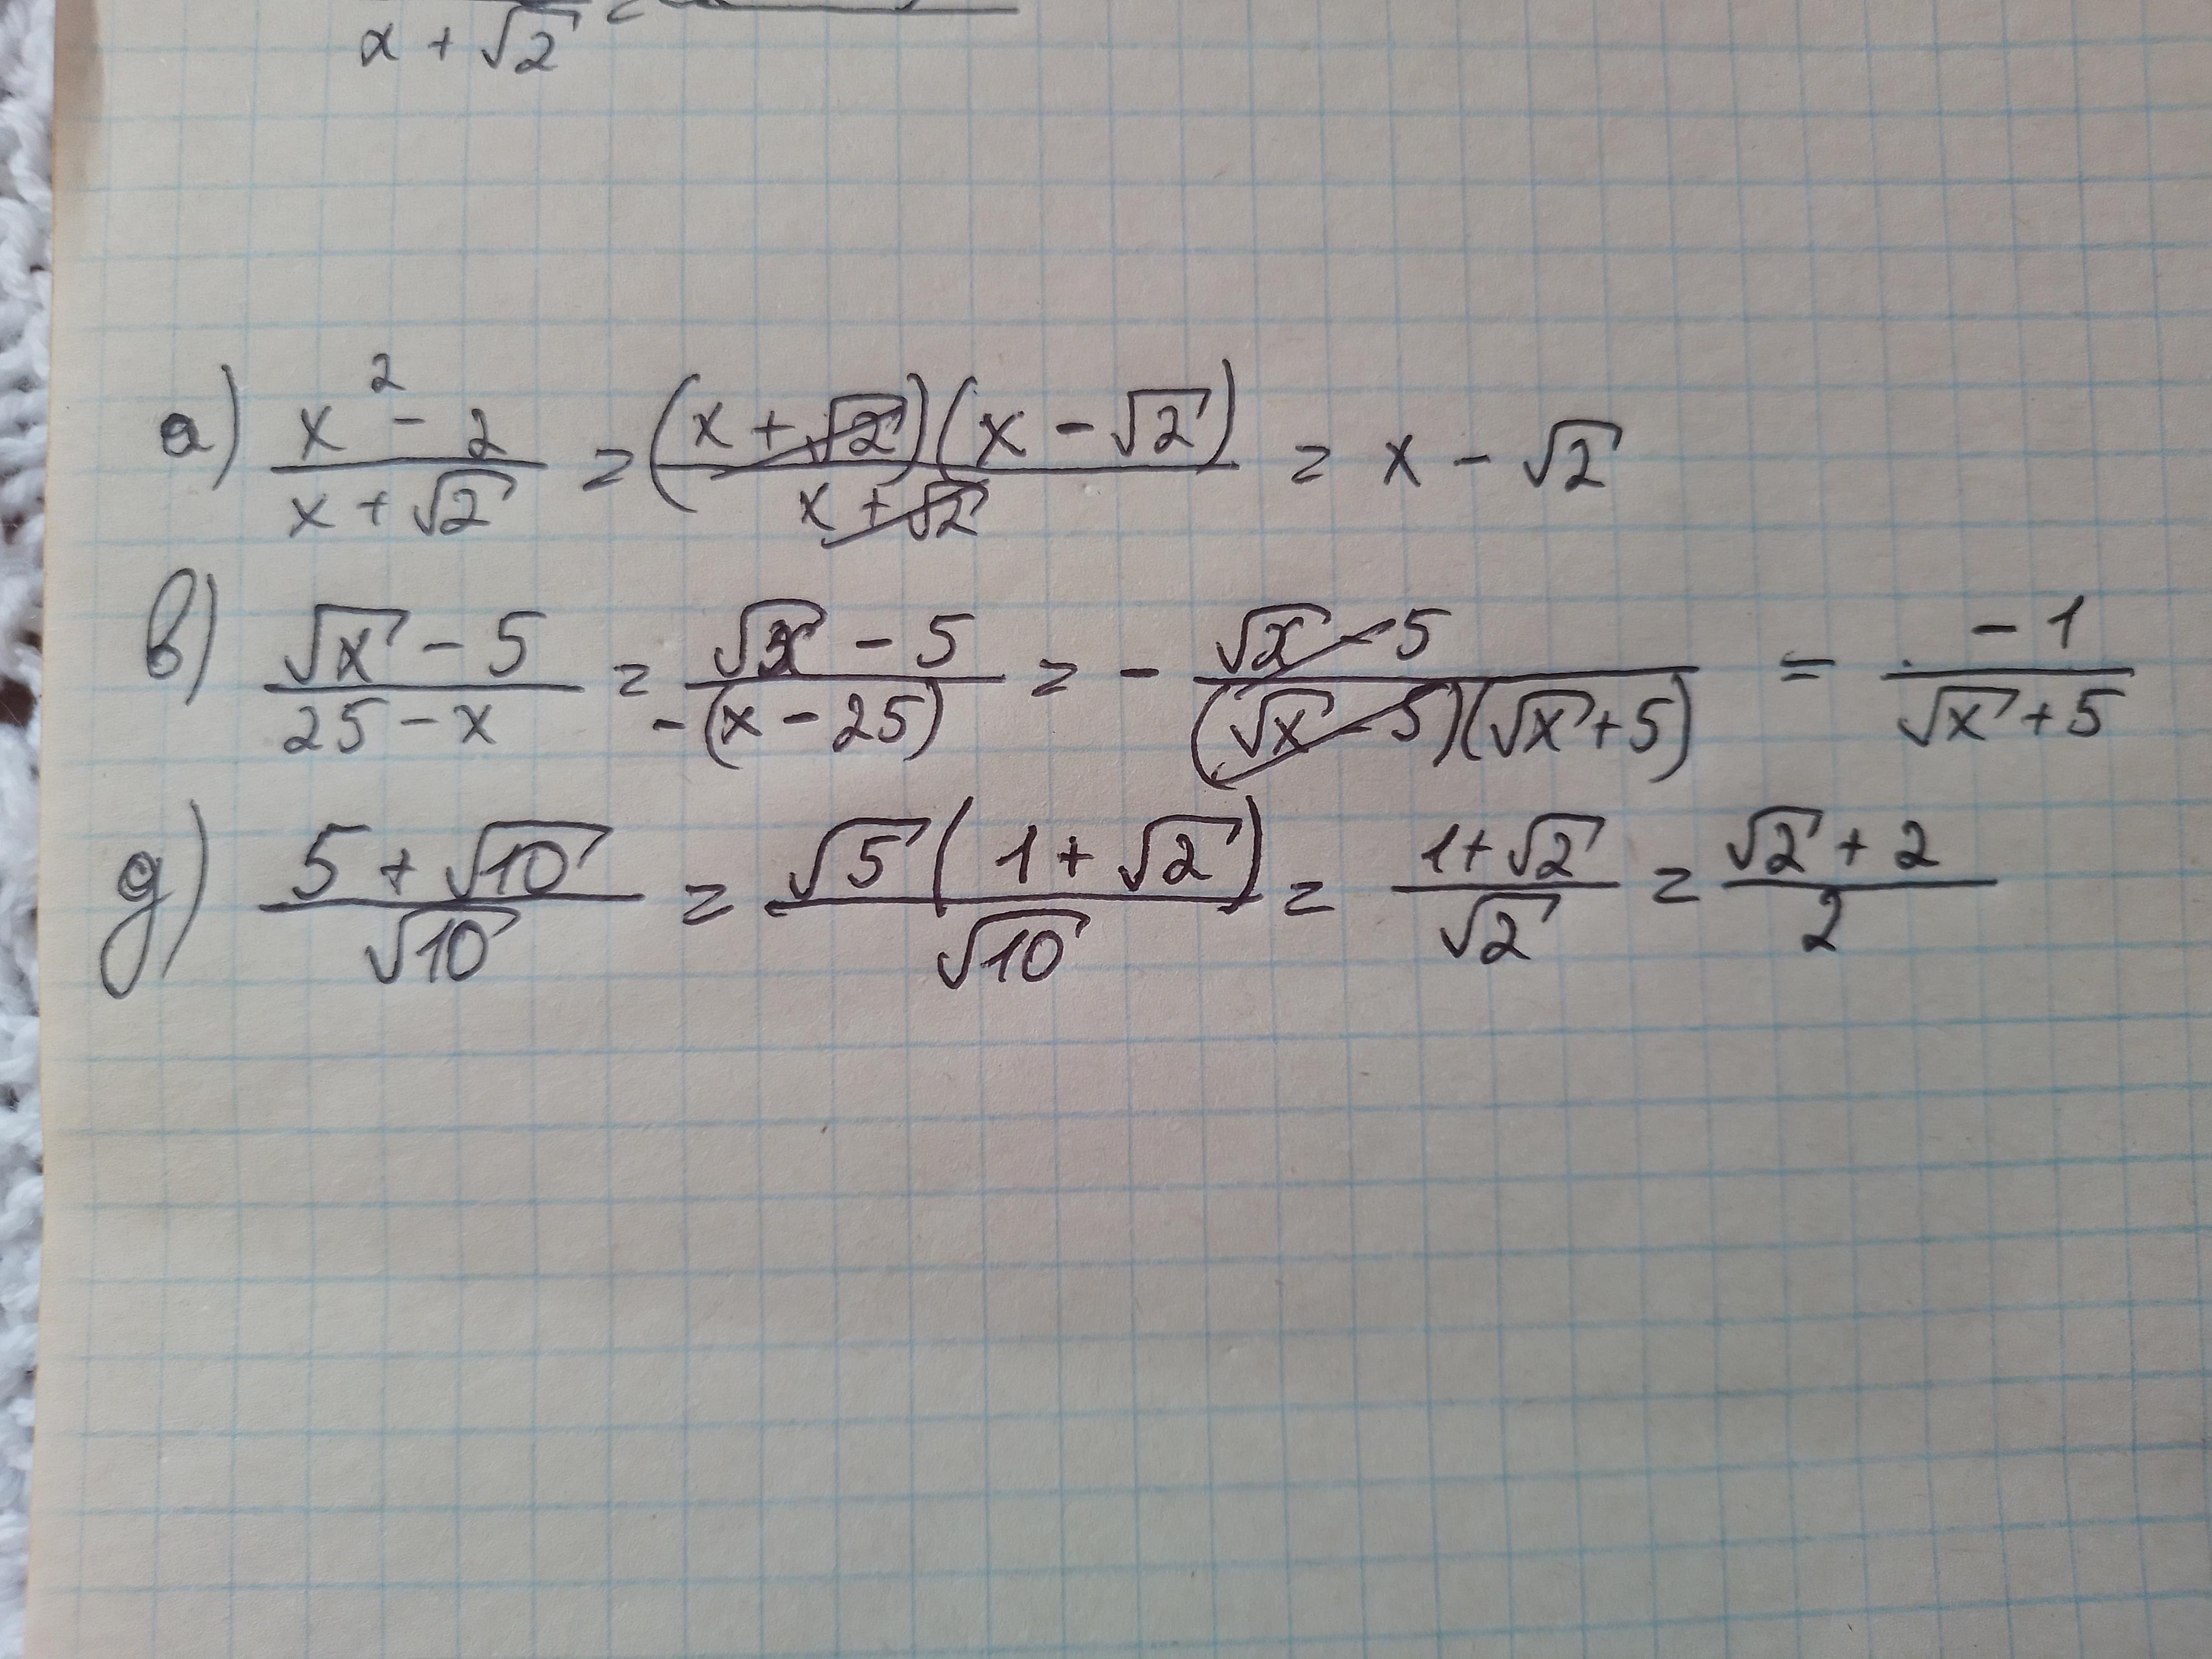 x + √2 =
а) (x² - 2)/(x + √2) = ((x + √2)(x - √2))/(x + √2) = x - √2
в) (√x - 5)/(25 - x) = (√x - 5)/(-(x - 25)) = - (√x - 5)/((√x - 5)(√x + 5)) = (-1)/(√x + 5)
д) (5 + √10)/√10 = (√5(1 + √2))/√10 = (1 + √2)/√2 = (√2 + 2)/2